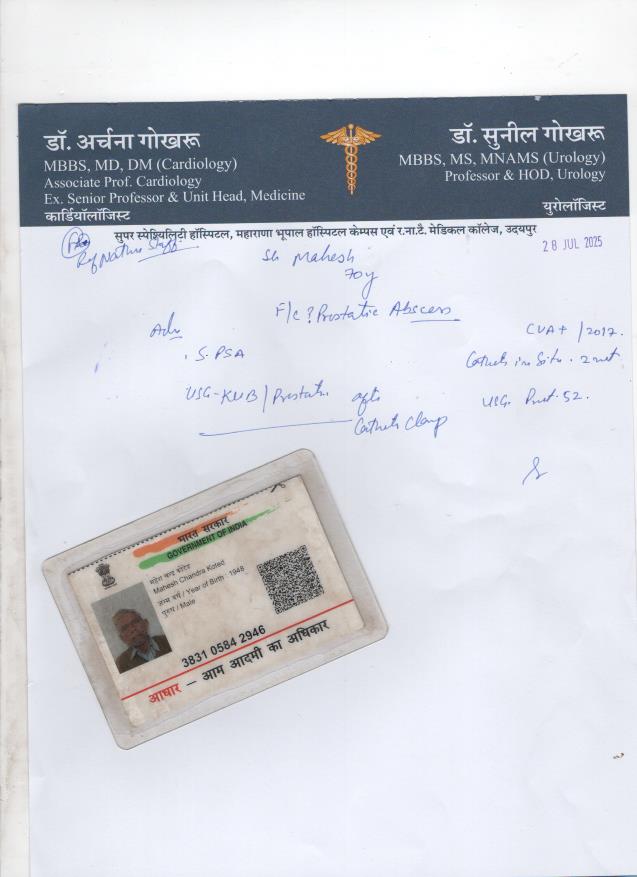 डॉ. अर्चना गोखरू
MBBS, MD, DM (Cardiology)
Associate Prof. Cardiology
Ex. Senior Professor & Unit Head, Medicine
कार्डियॉलॉजिस्ट
डॉ. सुनील गोखरू
MBBS, MS, MNAMS (Urology)
Professor & HOD, Urology
युरोलॉजिस्ट
सुपर स्पेश्यिलिटी हॉस्पिटल, महाराणा भूपाल हॉस्पिटल केम्पस एवं र.ना.टै. मेडिकल कॉलेज, उदयपुर
28 JUL 2025
Sh Mahesh
70y
F/c ? Prostatic Abscess
Adv
. S. PSA
USG-KUB/Prostate after
Catheter Clamp
CVA+ /2017.
Catheter in Situ . 2
USG. Prost. 52.
भारत सरकार
GOVERNMENT OF INDIA
महेश चन्द्र कोटेड
Mahesh Chandra Koted
जन्म वर्ष / Year of Birth : 1948
पुरुष / Male
3831 0584 2946
आधार – आम आदमी का अधिकार